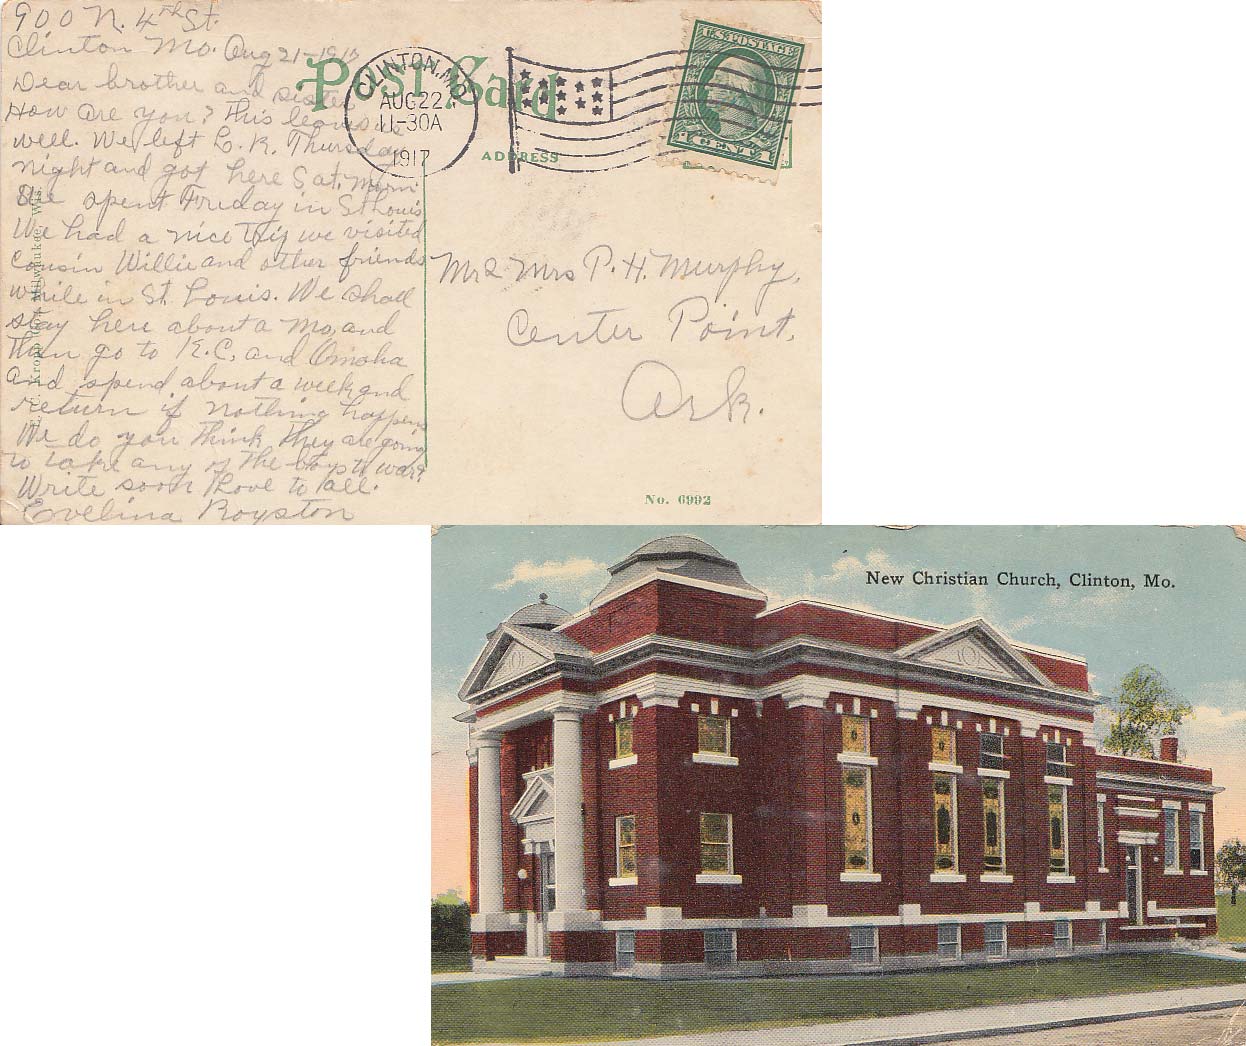 900 N. 4th St.
Clinton Mo. Aug 21-1917
Dear brother and sister
How are you? This leaves us
well. We left L. R. Thursday
night and got here Sat. Morn.
We spent Friday in St Louis
We had a nice trip we visited
Cousin Willie and other friends
while in St. Louis. We shall
stay here about a Mo, and
then go to K.C. and Omaha
and spend about a week and
return if nothing happens
We do you think they are going
to take any of the boys to war?
Write soon Love to all.
Evelina Royston
Post Card
CLINTON, MO.
AUG 22
11-30A
1917
ADDRESS
U.S. POSTAGE
1 CENT 1
Mr & Mrs P. H. Murphy,
Center Point,
Ark.
No. 6992
E. C. Kropp Co., Milwaukee, Wis.
New Christian Church, Clinton, Mo.